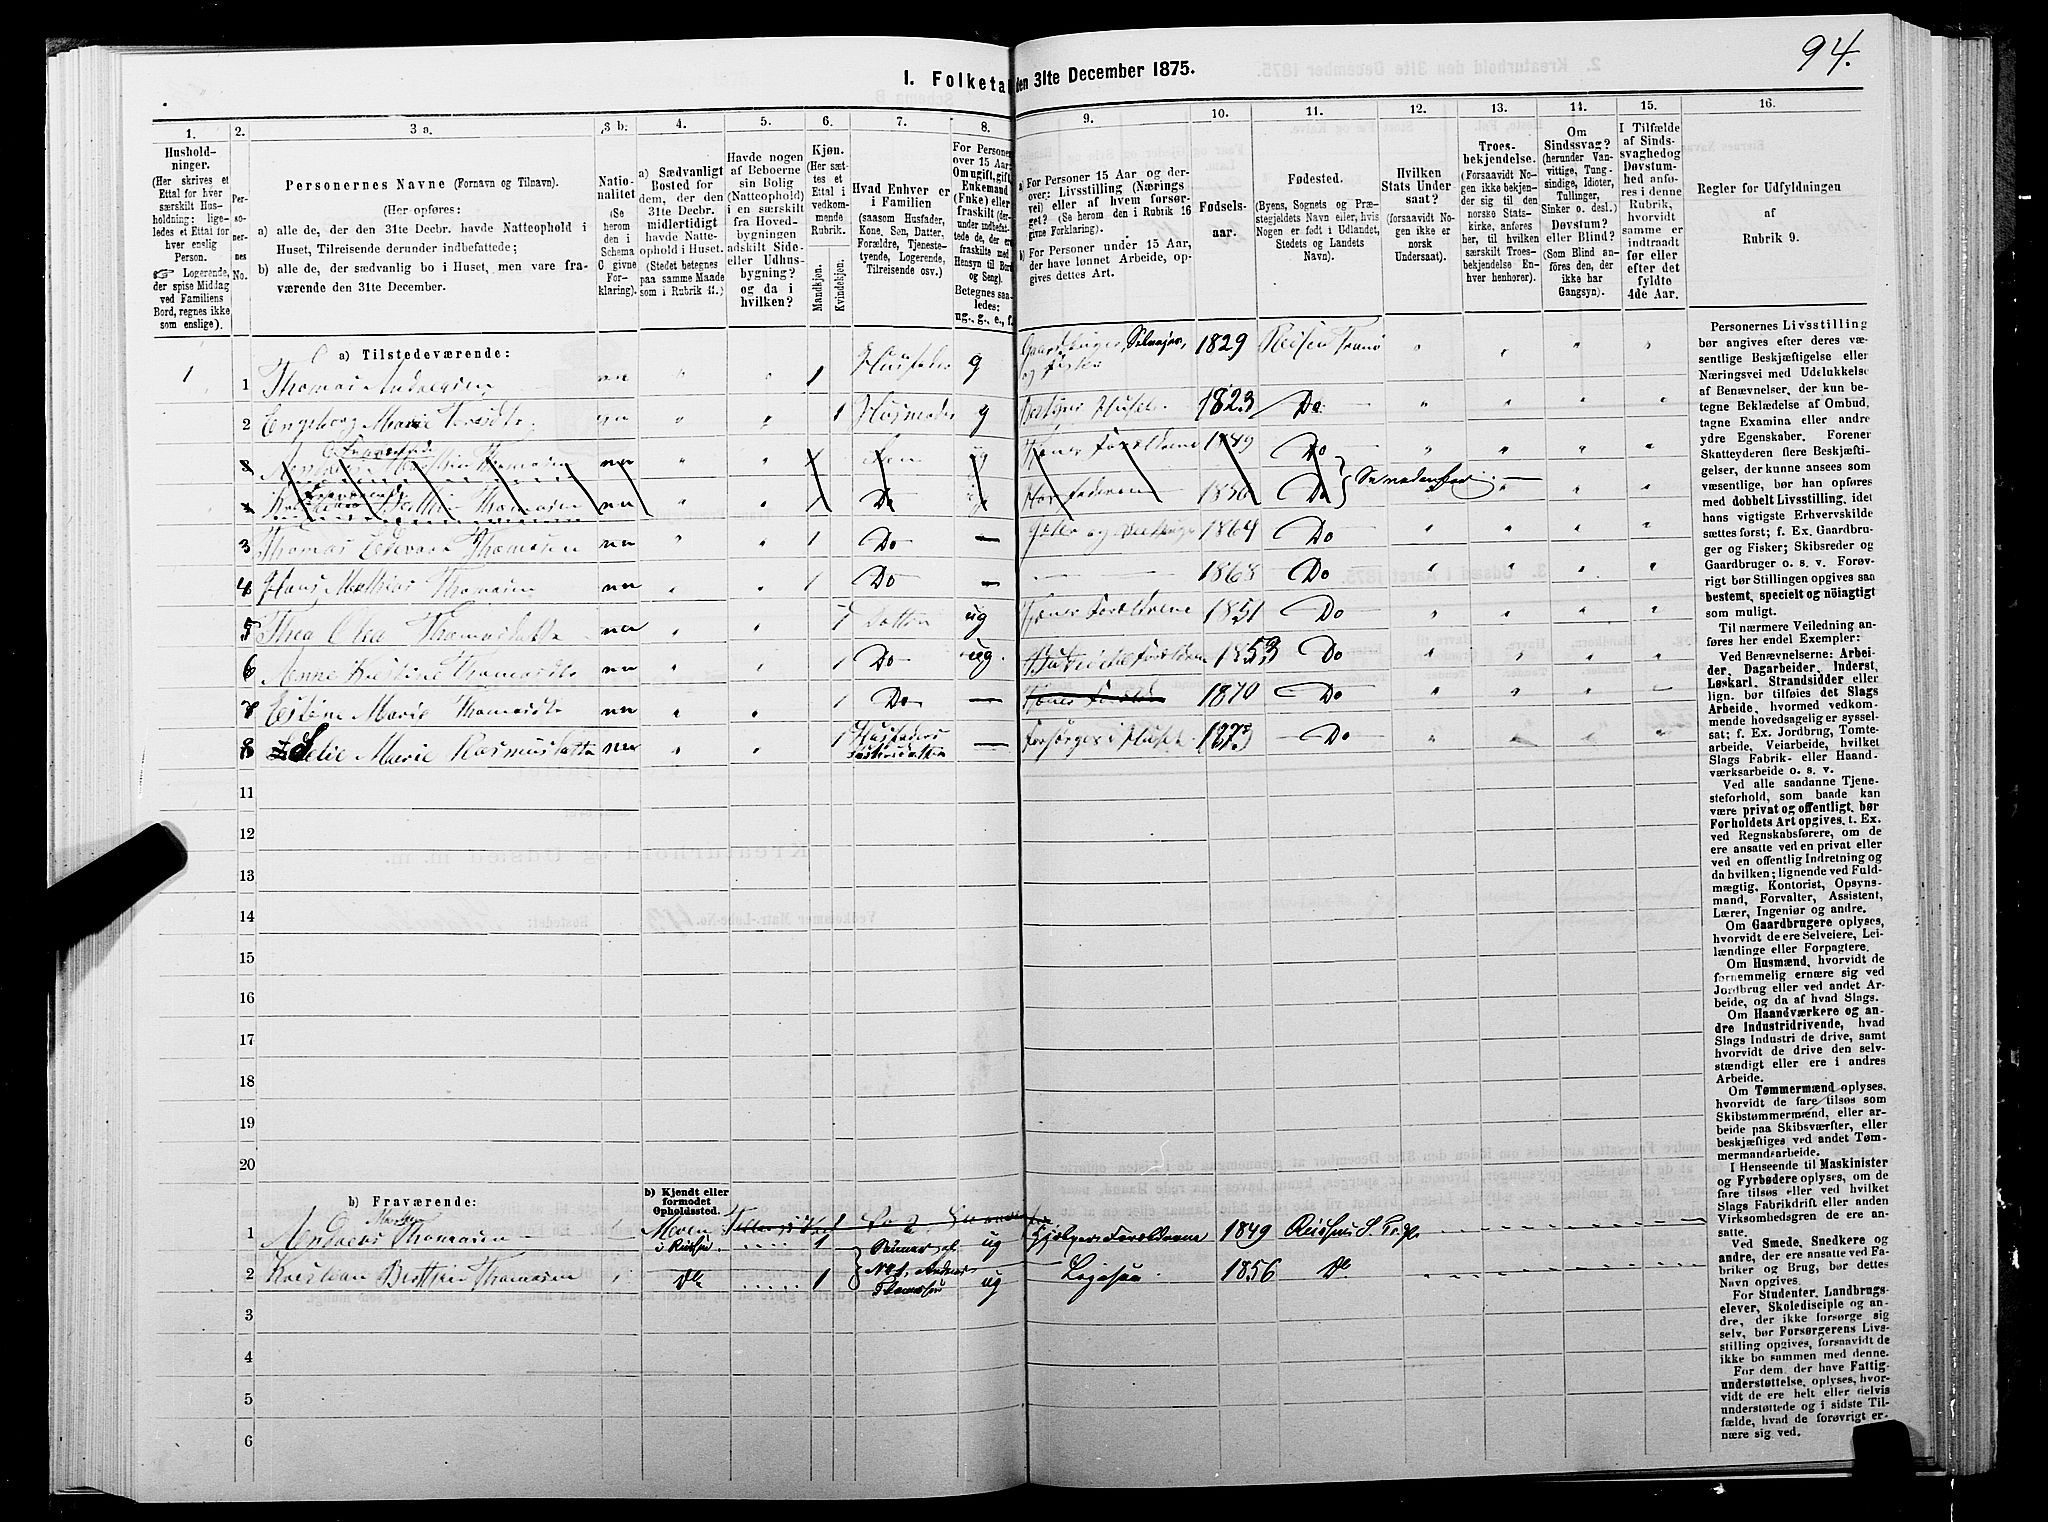 94.
1. Folketal den 31te December 1875.
1. 2. 3 a. 3 b. 4. 5. 6. 7. 8. 9. 10. 11. 12. 13. 14. 15. 16.
Hushold-
ninger.
(Her skrives et
Ettal for hver
særskilt Hus-
holdning; lige-
ledes et Ettal for
hver enslig
Person.
☞ Logerende,
der spise Middag
ved Familiens
Bord, regnes ikke
som enslige).
Per-
so-
ner-
nes
No.
Personernes Navne (Fornavn og Tilnavn).
(Her opføres:
a) alle de, der den 31te Decbr. havde Natteophold i
Huset, Tilreisende derunder indbefattede;
b) alle de, der sædvanlig bo i Huset, men vare fra-
værende den 31te December.
Natio-
nalitet
(Se
herom
den i
Schema
C givne
For-
klaring).
a) Sædvanligt
Bosted for
dem, der den
31te Decbr.
midlertidigt
havde Natte-
ophold i Huset.
(Stedet betegnes
paa samme Maade
som i Rubrik 11.)
Havde nogen
af Beboerne
sin Bolig
(Natteophold)
i en særskilt
fra Hoved-
bygningen
adskilt Side-
eller Udhus-
bygning?
og da i
hvilken?
Kjøn.
(Her sæt-
tes et
Ettal i
vedkom-
mende
Rubrik.
Mandkjøn.
Kvindekjøn.
Hvad Enhver er
i Familien
(saasom Husfader,
Kone, Søn, Datter,
Forældre, Tjeneste-
tyende, Logerende,
Tilreisende osv.)
For Personer
over 15 Aar:
Om ugift, gift,
Enkemand
(Enke) eller
fraskilt (der-
under indbefat-
tede de, der ere
fraskilte med
Hensyn til Bord
og Seng).
Betegnes saa-
ledes:
ug., g., e., f.
a) For Personer 15 Aar og der-
over: Livsstilling (Nærings
vei) eller af hvem forsør-
get? (Se herom den i Rubrik 16
givne Forklaring).
b) For Personer under 15 Aar,
der have lønnet Arbeide, op-
gives dettes Art.
Fødsels-
aar.
Fødested.
(Byens, Sognets og Præ-
stegjeldets Navn eller, hvis
Nogen er født i Udlandet,
Stedets og Landets
Navn).
Hvilken
Stats Under-
saat?
(forsaavidt No-
gen ikke er
norsk
Undersaat).
Troes-
bekjendelse.
(Forsaavidt No-
gen ikke bekjen-
der sig til den
norske Stats-
kirke, anføres
her, til hvilken
særskilt Troes-
bekjendelse En-
hver henhører).
Om
Sindssvag?
(herunder Van-
vittige, Tung-
sindige, Idioter,
Tullinger,
Sinker o. desl.)
Døvstum?
eller Blind?
(Som Blind an-
føres den, der
ikke har
Gangsyn).
I Tilfælde
af Sinds-
svaghed og
Døvstum-
hed anfø-
res i denne
Rubrik,
hvorvidt
samme er
indtraadt
før eller
efter det
fyldte
4de Aar.
Regler for Udfyldningen
af
Rubrik 9.
a) Tilstedeværende:
1 1 Thomas Andreasen nn 1 Husfader g Gaardbruger, Selveier, og Fisker 1829 Reisen Tranø
2 Engeborg Marie nn 1 Husmoder g Bestyrer Huset 1823 Do
3 Thomasen nn 1 Søn ug Tjener Forældrene 1849 Do
4 Thomasen nn 1 Do ug Hos Faderen 1856 Do
3 Thomas Edevart Thomasen nn 1 Do — Gjeter og 1864 Do
4 Hans Mathias Thomasen nn 1 Do — — 1868 Do
5 Thea Olea Thomasdatte nn 1 Datter ug Tjener Forældrene 1851 Do
6 Anne Kirstine Thomasdt nn 1 Do ug. Forældrene 1853 Do
7 Marie Thomasdt nn 1 Do — Tjener Foræld 1870 Do
8 Marie Rasmusdatte nn 1 Husfaders Søsterdatter — Forsørges i Huset 1873 Do
11
12
13
14
15
16
17
18
19
20
b) Fraværende:
b) Kjendt eller
formodet
Opholdssted.
1 Andreas Thomasen Moen i Reisen 1 ug Hjelper Forældrene 1849 Reisen
2 Kristian Thomasen Do 1 No 1, Andreas Thomasen ug 1856 Do
3
4
5
6
Personernes Livsstilling
bør angives efter deres væ-
sentlige Beskjæftigelse eller
Næringsvei med Udelukkelse
af Benævnelser, der kun be-
tegne Beklædelse af Ombud,
tagne Examina eller andre
ydre Egenskaber. Forener
Skatteyderen flere Beskjæfti-
gelser, der kunne ansees som
væsentlige, bør han opføres
med dobbelt Livsstilling, idet
hans vigtigste Erhvervskilde
sættes først; f. Ex. Gaardbru-
ger og Fisker; Skibsreder og
Gaardbruger o. s. v. Forøv-
rigt bør Stillingen opgives saa
bestemt, specielt og nöiagtigt
som muligt.
Til nærmere Veiledning an-
føres her endel Exempler:
Ved Benævnelserne: Arbei-
der, Dagarbeider, Inderst,
Løskarl, Strandsidder eller
lign. bør tilføies det Slags
Arbeide, hvormed vedkom-
mende hovedsagelig er syssel-
sat; f. Ex. Jordbrug, Tomte-
arbeide, Veiarbeide, hvilket
Slags Fabrik- eller Haand-
værksarbeide o. s. v.
Ved alle saadanne Tjene-
steforhold, som baade kan
være privat og offentligt, bør
Forholdets Art opgives, t. Ex.
ved Regnskabsførere, om de
ere ansatte ved en privat eller
ved en offentlig Indretning og
da hvilken; lignende ved Fuld-
mægtig, Kontorist, Opsyns-
mand, Forvalter, Assistent,
Lærer, Ingeniør og andre.
Om Gaardbrugere oplyses,
hvorvidt de ere Selveiere, Lei-
lændinge eller Forpagtere.
Om Husmænd, hvorvidt de
fornemmelig ernære sig ved
Jordbrug eller ved andet Ar-
beide, og da af hvad Slags.
Om Haandværkere og an-
dre Industridrivende, hvad
Slags Industri de drive, samt
hvorvidt de drive den selv-
stændigt eller ere i andres
Arbeide.
Om Tømmermænd oplyses,
hvorvidt de fare tilsøs som
Skibstømmermænd, eller ar-
beide paa Skibsværfter, eller
beskjæftiges ved andet Tøm-
mermandsarbeide.
I Henseende til Maskinister
og Fyrbødere oplyses, om de
fare tilsøs eller ved hvilket
Slags Fabrikdrift eller anden
Virksomhedsgren de ere an-
satte.
Ved Smede, Snedkere og
andre, der ere ansatte ved Fa-
briker og Brug, bør dettes
Navn opgives.
For Studenter, Landbrugs-
elever, Skoledisciple og an-
dre, der ikke forsørge sig
selv, bør Forsørgerens Livs-
stilling opgives, forsaavidt de
ikke bo sammen med denne.
For dem, der have Fattig-
understøttelse, oplyses, hvor-
vidt de ere helt eller delvis
understøttede og i sidste Til-
fælde, hvad de forøvrigt er-
nære sig ved.